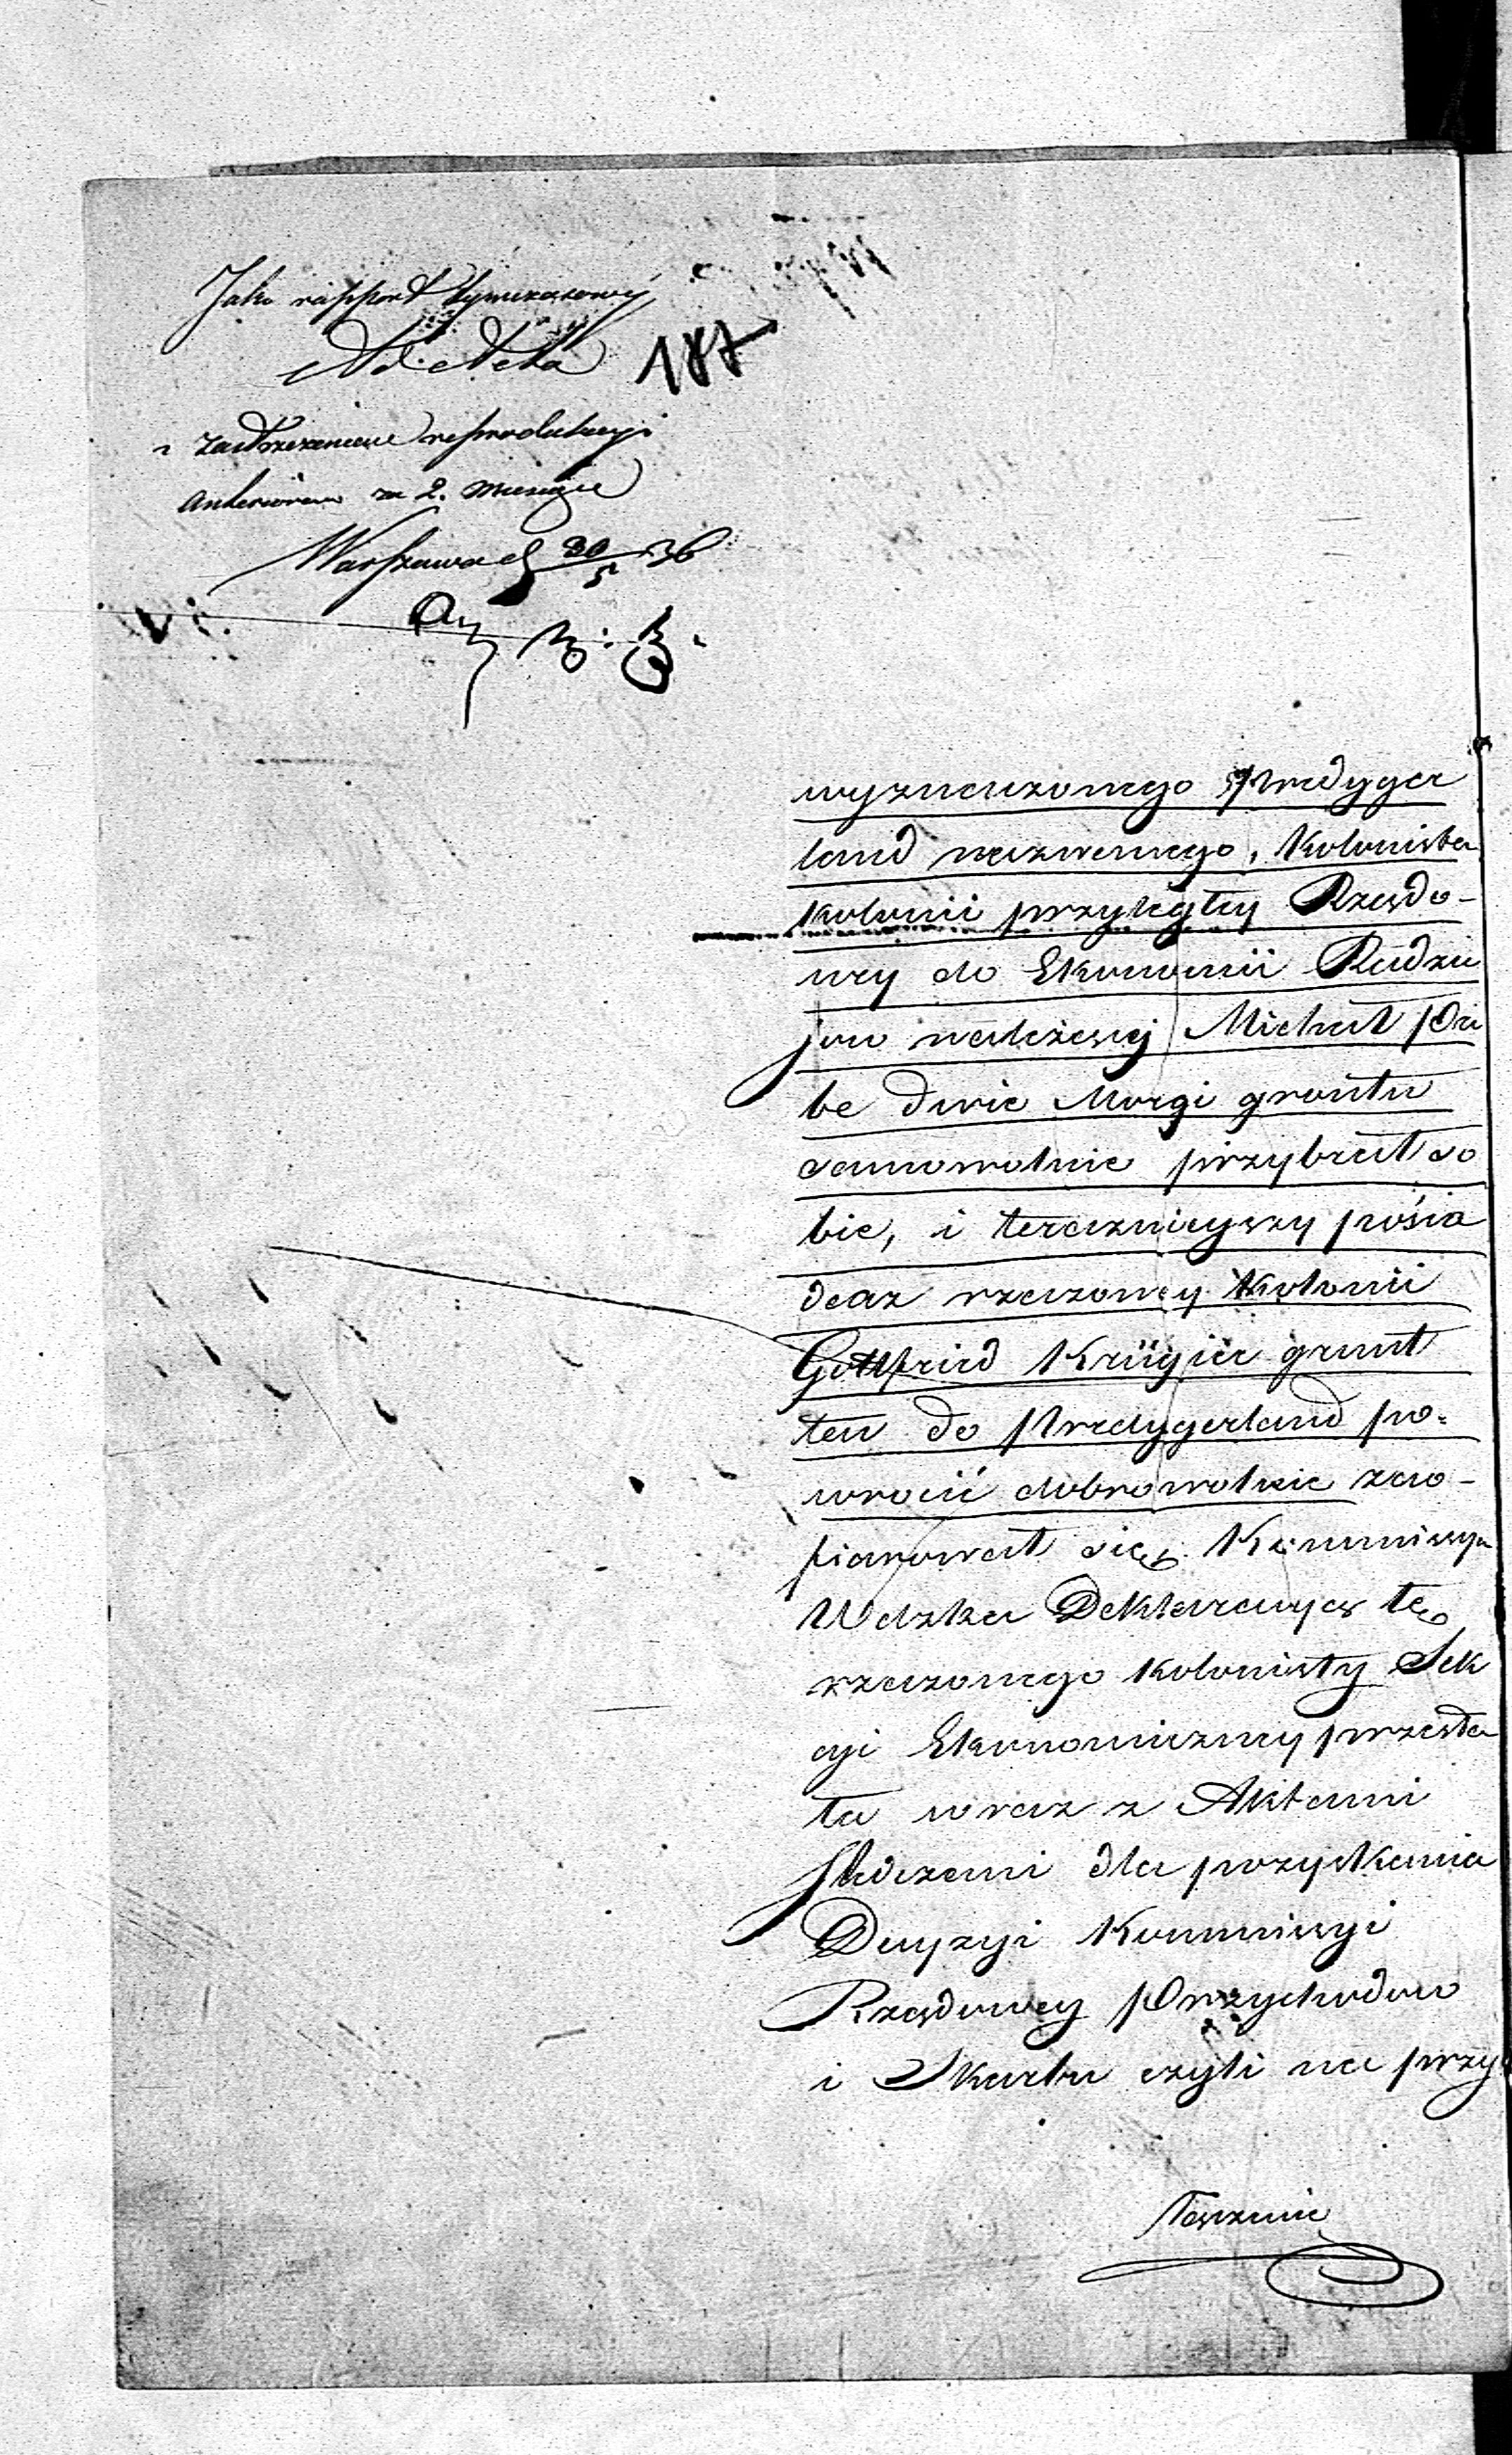 Jako rapport tymczasowy
Ad Acta
187
z zastrzeżeniem reprodukcyi
anteriorów za 2. miesiące
Warszawa d 30/5 36
wyznaczonego Predyger
land nazwanego, Kolonista
kolonii przyległey Rządo-
wey do Ekonomii Radzie
jow należącej Michał Pri
be dwie Morgi gruntu
samowolnie przybrał so
bie, i teraznieyszy posia
dacz rzeczoney Kolonii
Gottfried Krügier grunt
ten do Predygerland po-
wrócić dobrowolnie zao-
fiarował się. Kommissya
Wdzka Deklaracyą tę
rzeczonego kolonisty Sek
cyi Ekonomiczney przesła
ła wraz z Aktami
śledczemi dla pozyskania
Decyzyi Kommissyi
Rządowey Przychodow
i Skarbu czyli na przy
łączenie